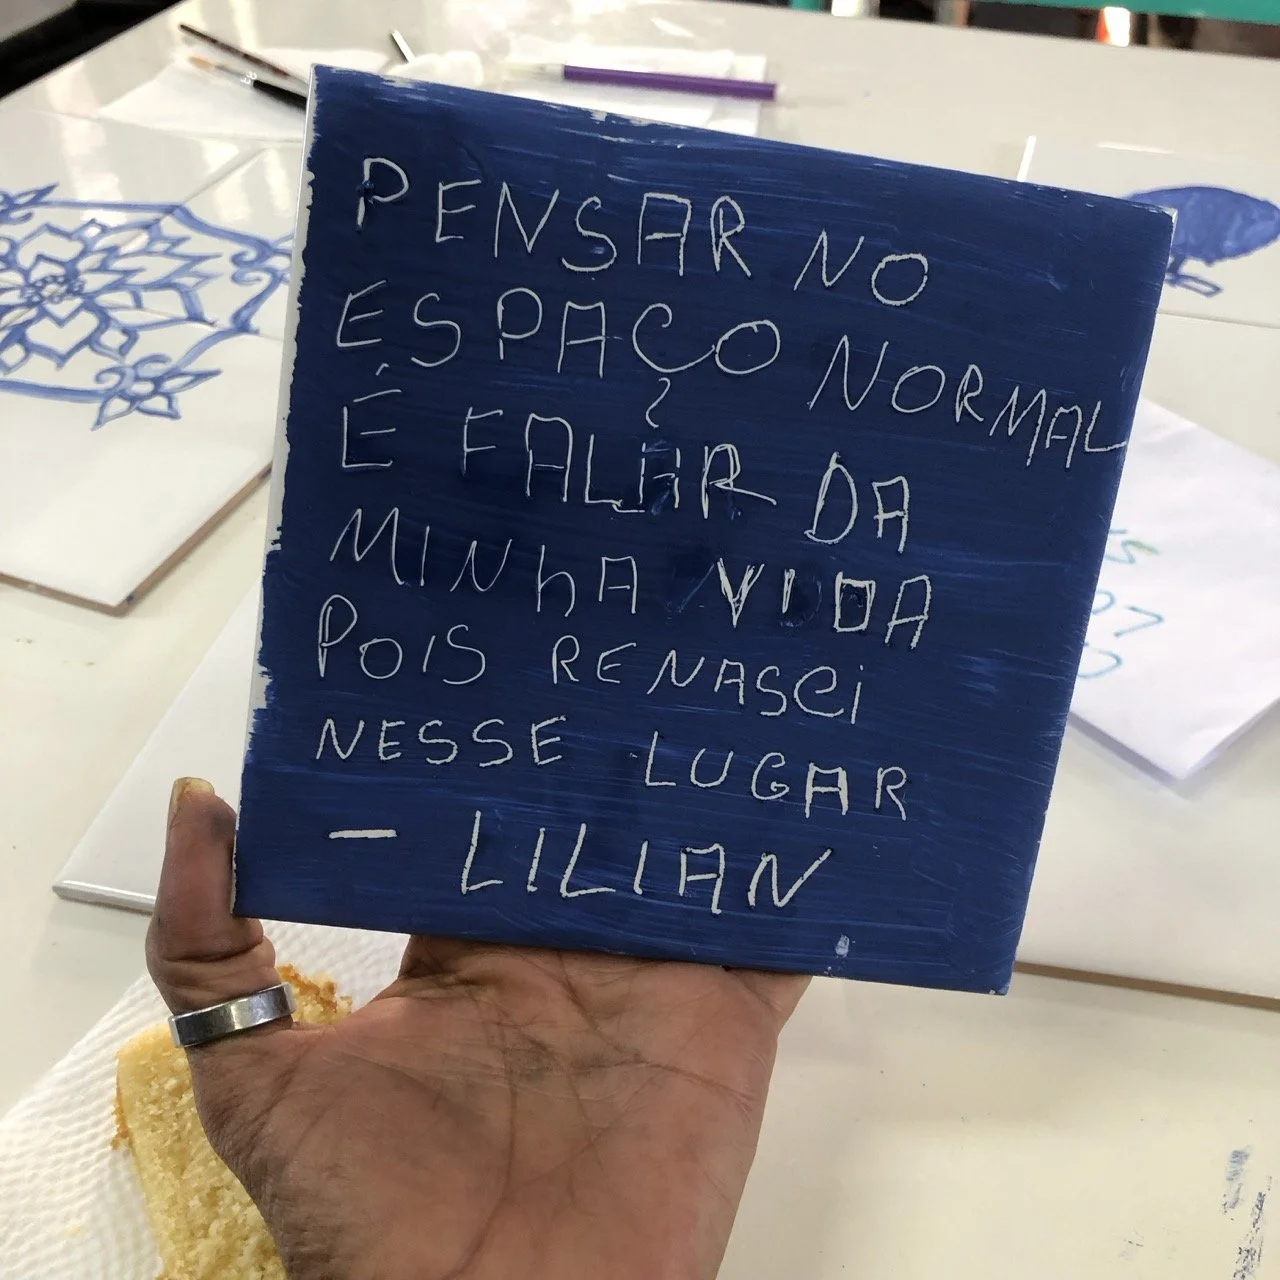 PENSAR NO
ESPAÇO NORMAL
É FALAR DA
MINhA VIDA
POIS RENASCi
NESSE LUGAR
— LILIAN